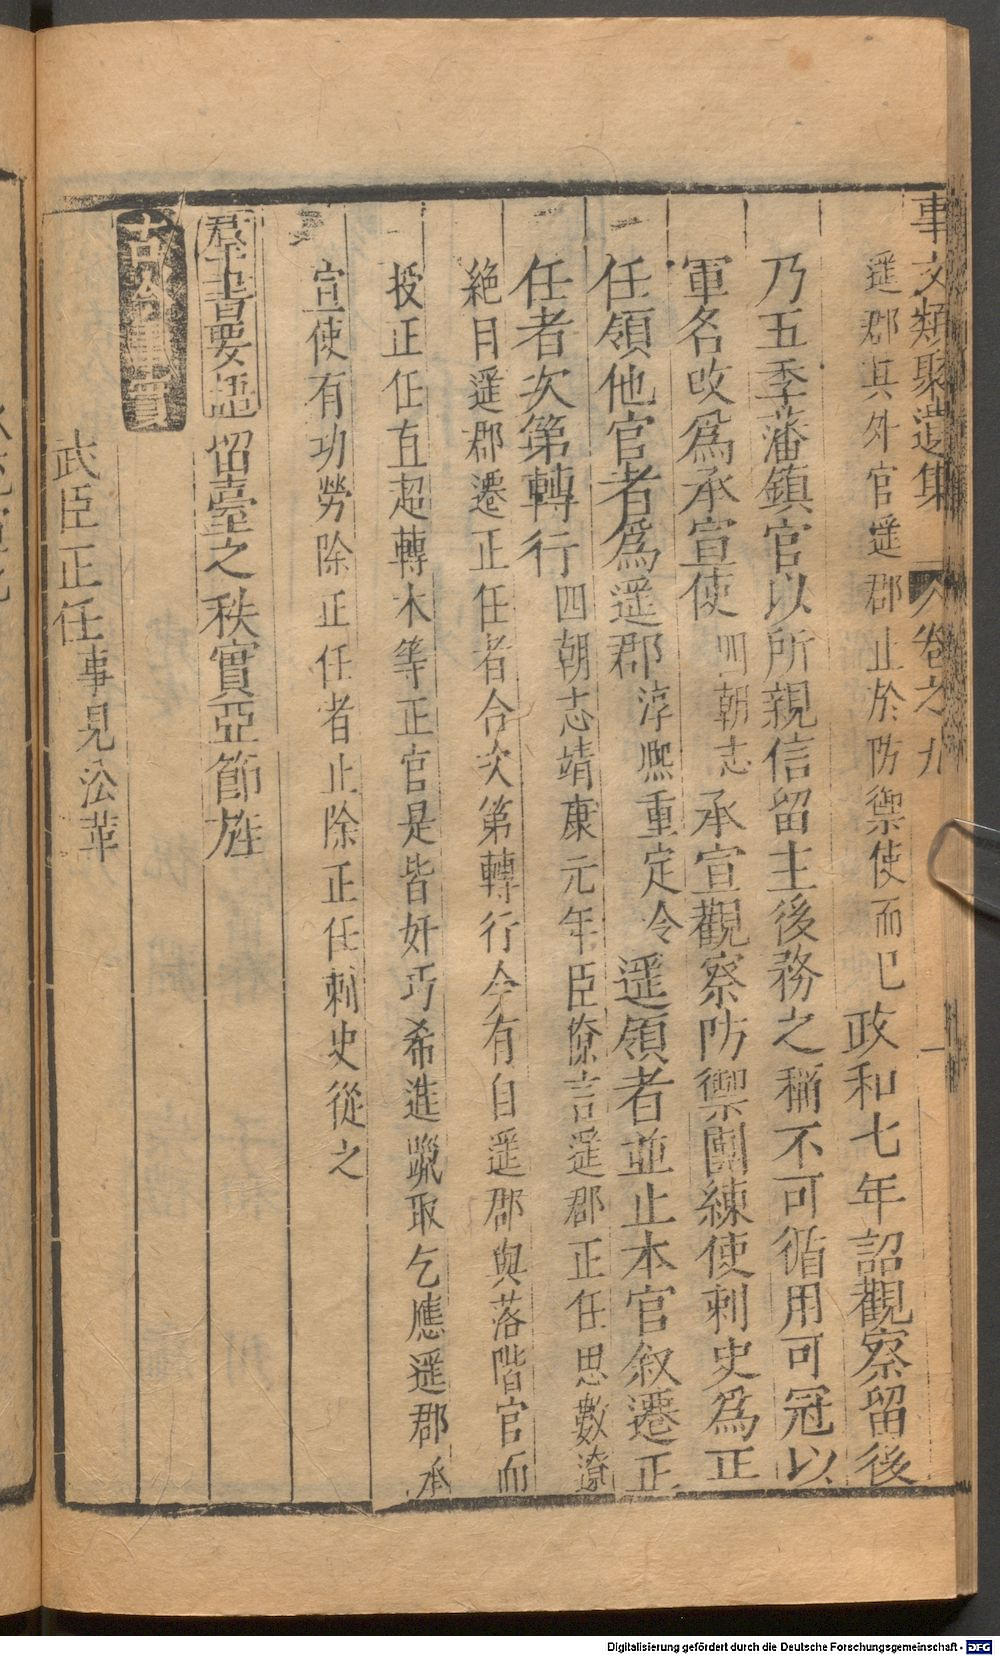 事文類聚遺集 卷之九
遥郡其外官遥郡止於防禦使而已政和七年詔觀察留後
乃五季藩鎮官以所親信留主後務之稱不可循用可冠以
軍名改爲承宣使四朝志承宣觀察防禦團練使刺史爲正
任領他官者爲遥郡淳熈重定令遥領者並止本官叙遷正
任者次第轉行四朝志靖康元年臣僚言遥郡正任恩數遼
絶自遥郡遷正任者合次第轉行今有自遥郡與落階官而
授正任直超轉本等正官是皆奸巧希進躐取乞應遥郡承
宣使有功勞除正任者止除正任刺史從之
羣書要語 留臺之秩實亞節旄
古今事實
武臣正任事見沿革
Digitalisierung gefördert durch die Deutsche Forschungsgemeinschaft - DFG